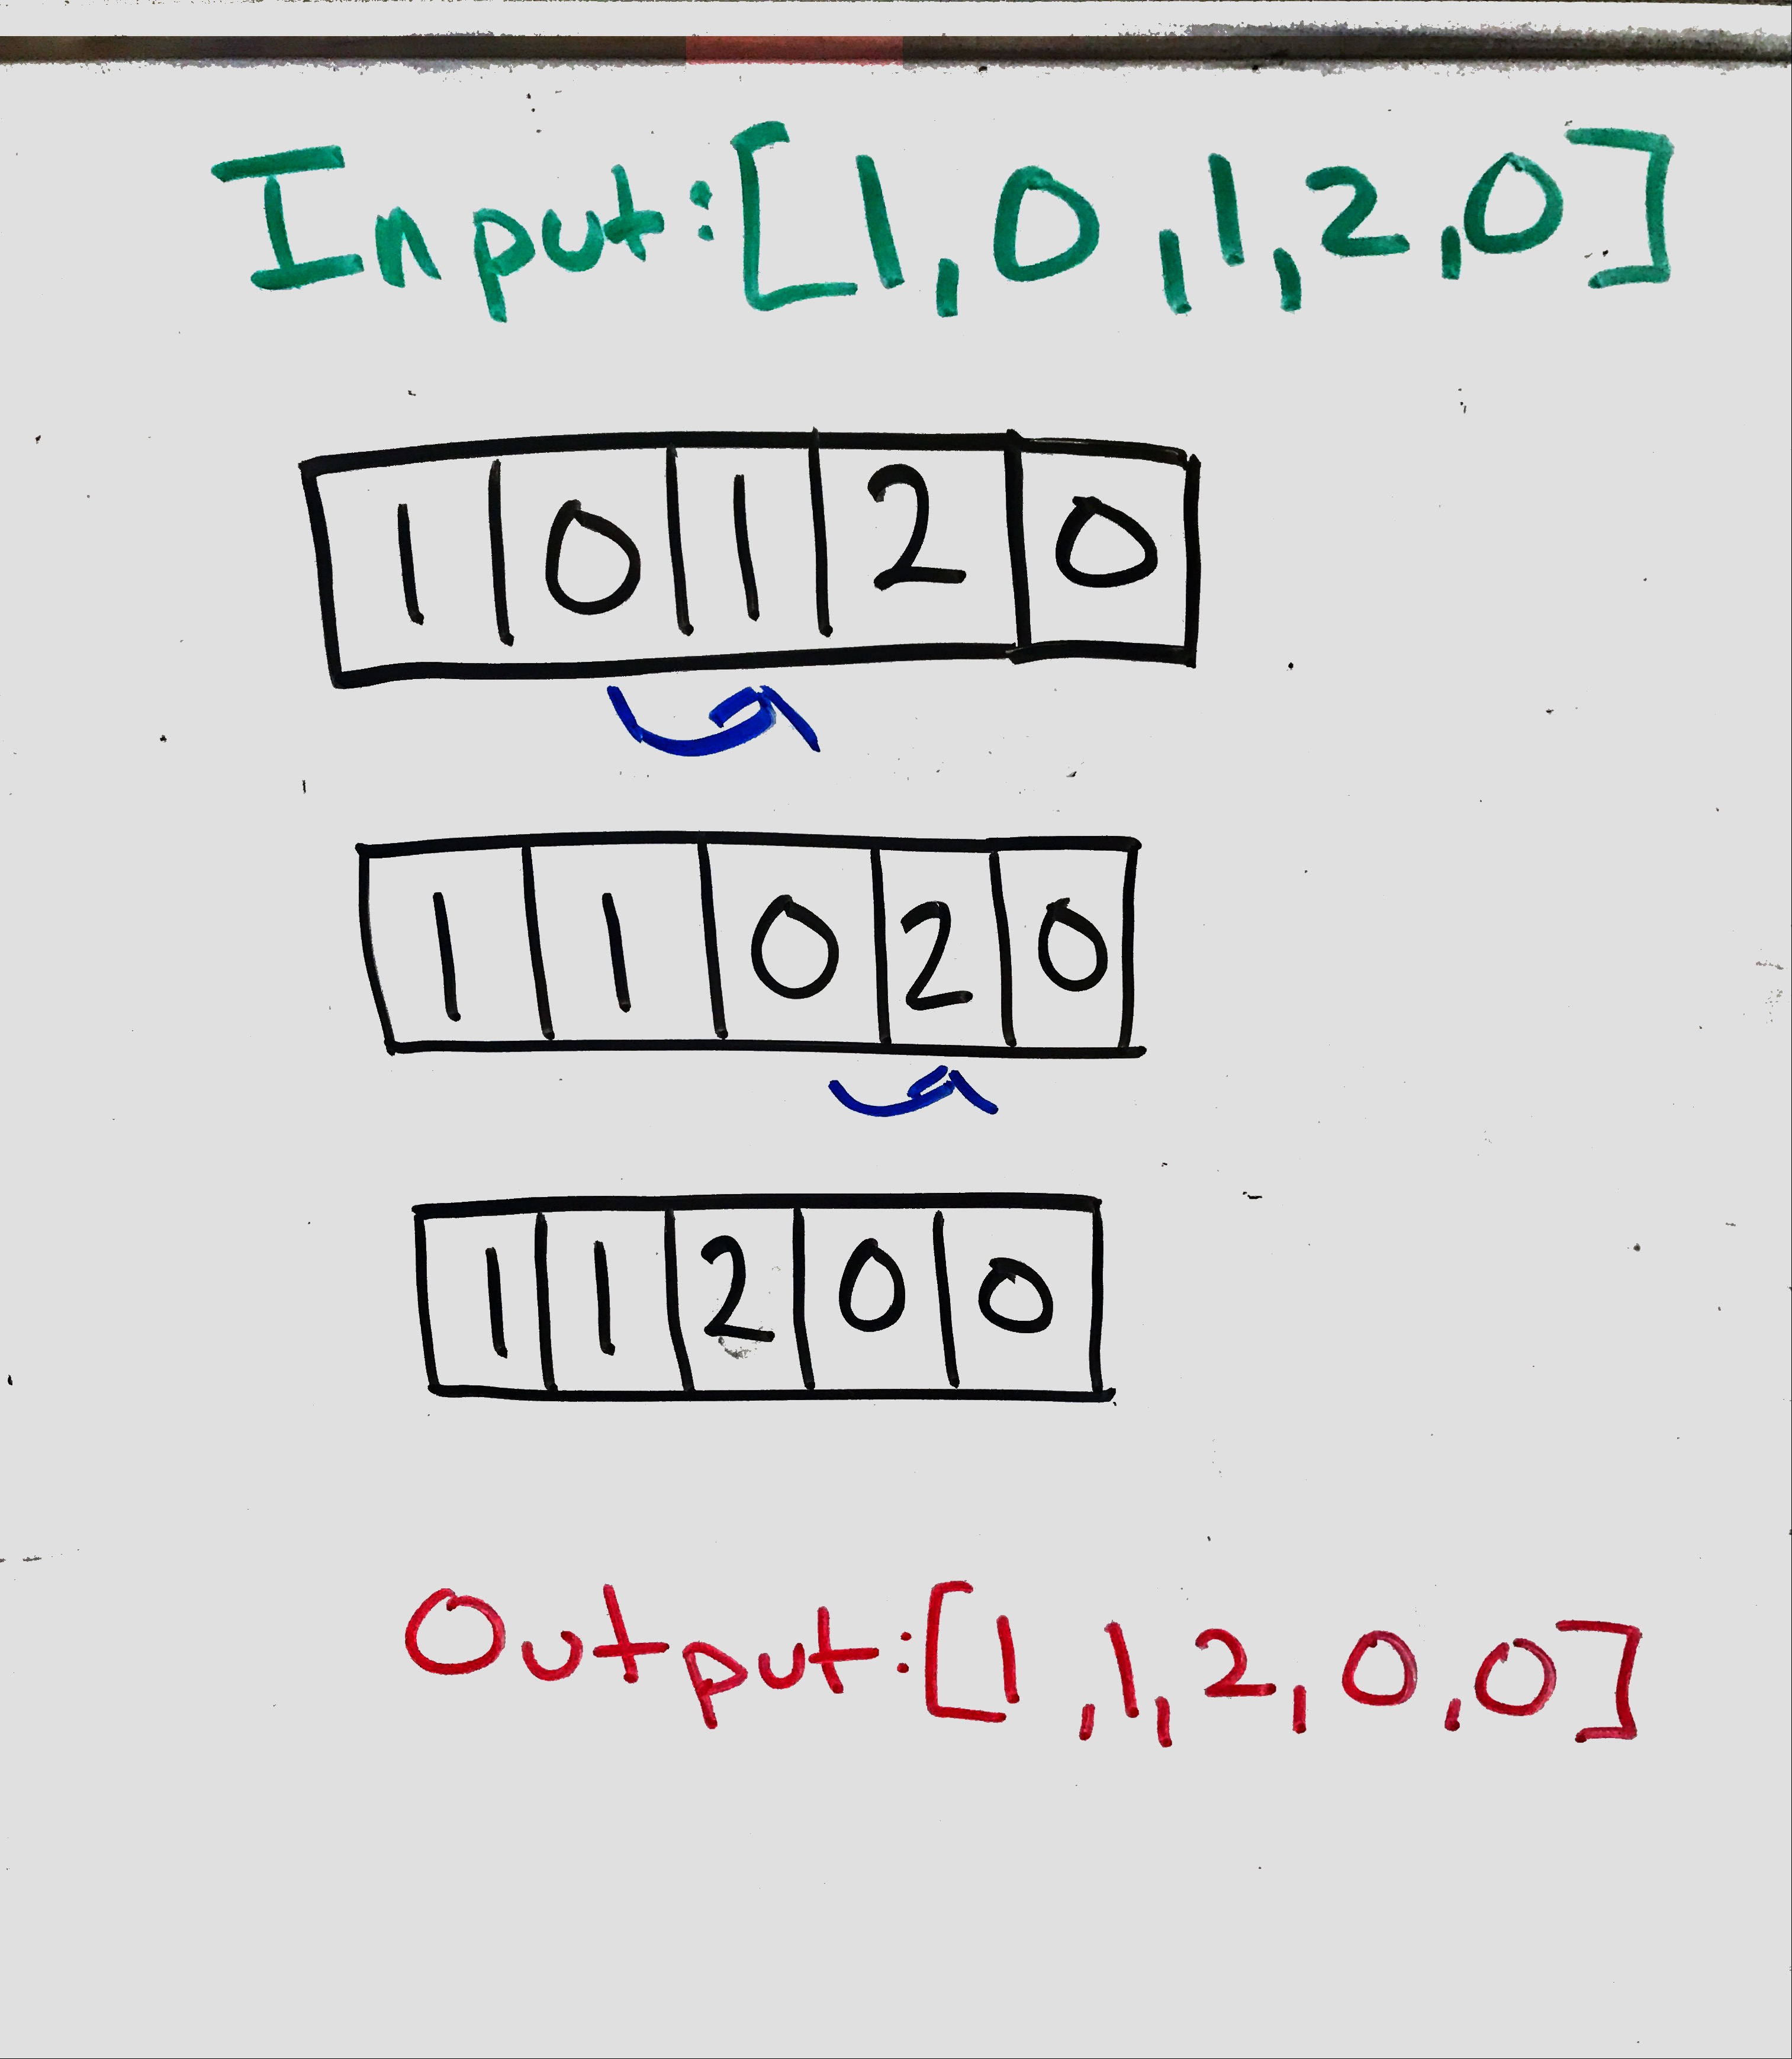 Input:[1,0,1,2,0]
1 0 1 2 0
1 1 0 2 0
1 1 2 0 0
Output:[1,1,2,0,0]